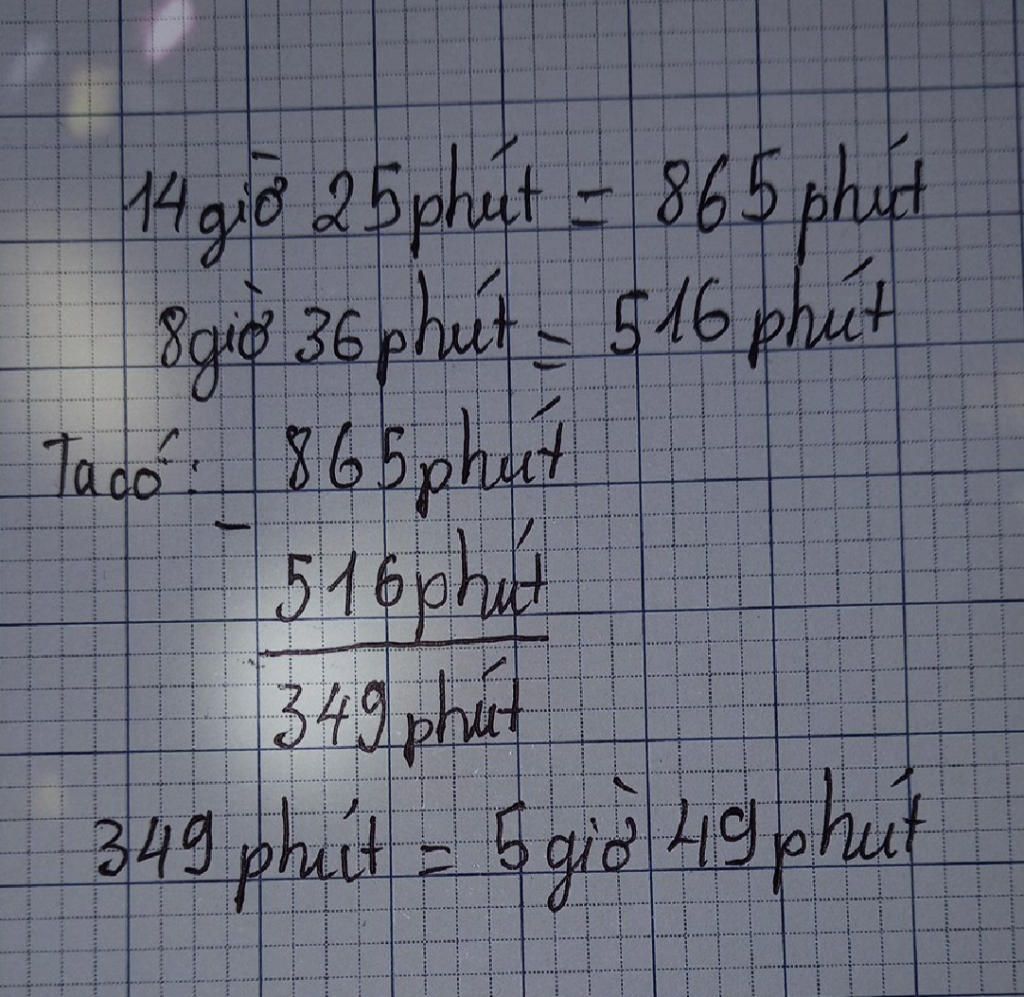 14 giờ 25 phút = 865 phút
8 giờ 36 phút = 516 phút
Ta có: 865 phút
-
516 phút
349 phút
349 phút = 5 giờ 49 phút